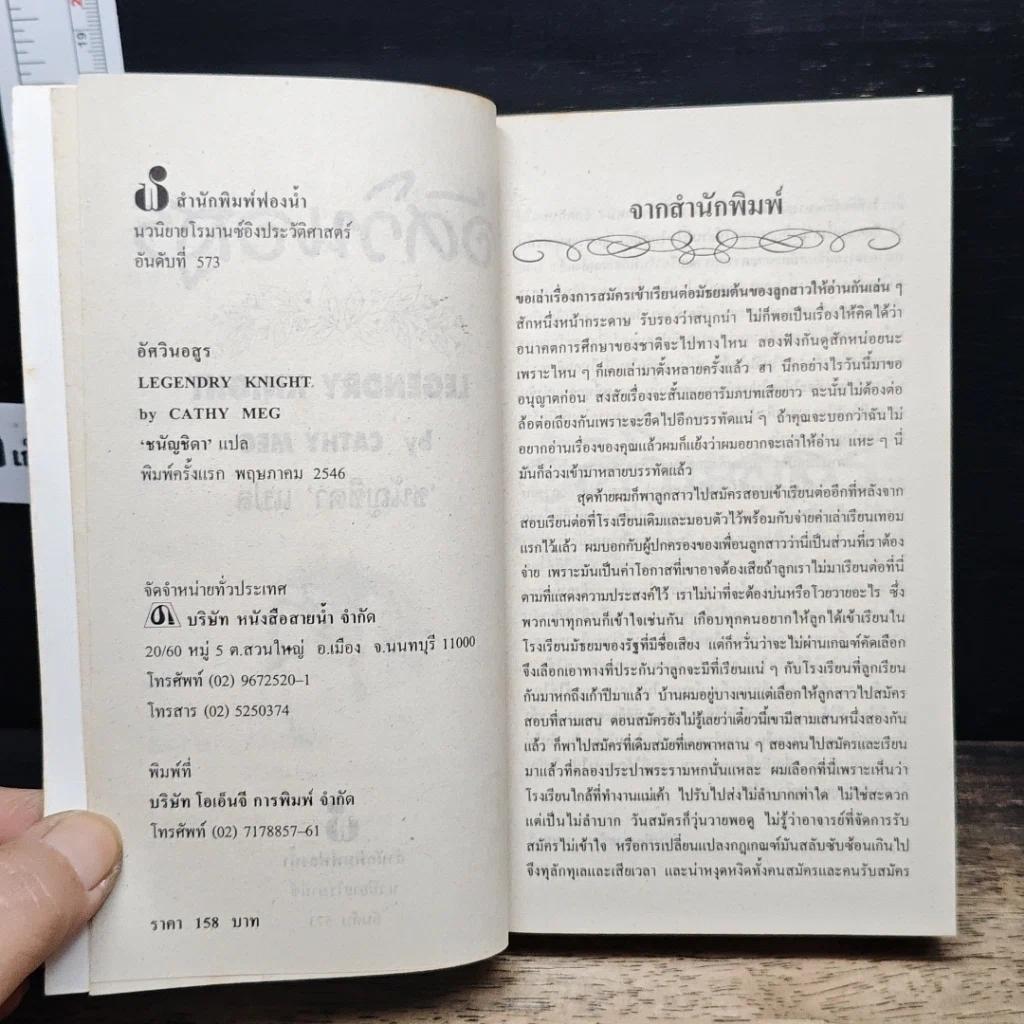 สำนักพิมพ์ฟองน้ำ
นวนิยายโรมานซ์อิงประวัติศาสตร์
อันดับที่ 573
อัศวินอสูร
LEGENDRY KNIGHT.
by CATHY MEG
‘ชนัญชิดา’ แปล
พิมพ์ครั้งแรก พฤษภาคม 2546
จัดจำหน่ายทั่วประเทศ
บริษัท หนังสือสายน้ำ จำกัด
20/60 หมู่ 5 ต.สวนใหญ่ อ.เมือง จ.นนทบุรี 11000
โทรศัพท์ (02) 9672520-1
โทรสาร (02) 5250374
พิมพ์ที่
บริษัท โอเอ็นจี การพิมพ์ จำกัด
โทรศัพท์ (02) 7178857-61
ราคา 158 บาท
จากสำนักพิมพ์
ขอเล่าเรื่องการสมัครเข้าเรียนต่อมัธยมต้นของลูกสาวให้อ่านกันเล่น ๆ
สักหนึ่งหน้ากระดาษ รับรองว่าสนุกน่า ไม่ก็พอเป็นเรื่องให้คิดได้ว่า
อนาคตการศึกษาของชาติจะไปทางไหน ลองฟังกันดูสักหน่อยนะ
เพราะไหน ๆ ก็เคยเล่ามาตั้งหลายครั้งแล้ว ฮา นึกอย่างไรวันนี้มาขอ
อนุญาตก่อน สงสัยเรื่องจะสั้นเลยอารัมภบทเสียยาว ฉะนั้นไม่ต้องต่อ
ล้อต่อเถียงกันเพราะจะยืดไปอีกบรรทัดแน่ ๆ ถ้าคุณจะบอกว่าฉันไม่
อยากอ่านเรื่องของคุณแล้วผมก็แย้งว่าผมอยากจะเล่าให้อ่าน แหะ ๆ นี่
มันก็ล่วงเข้ามาหลายบรรทัดแล้ว
สุดท้ายผมก็พาลูกสาวไปสมัครสอบเข้าเรียนต่ออีกที่หลังจาก
สอบเรียนต่อที่โรงเรียนเดิมและมอบตัวไว้พร้อมกับจ่ายค่าเล่าเรียนเทอม
แรกไว้แล้ว ผมบอกกับผู้ปกครองของเพื่อนลูกสาวว่านี่เป็นส่วนที่เราต้อง
จ่าย เพราะมันเป็นค่าโอกาสที่เขาอาจต้องเสียถ้าลูกเราไม่มาเรียนต่อที่นี่
ตามที่แสดงความประสงค์ไว้ เราไม่น่าที่จะต้องบ่นหรือโวยวายอะไร ซึ่ง
พวกเขาทุกคนก็เข้าใจเช่นกัน เกือบทุกคนอยากให้ลูกได้เข้าเรียนใน
โรงเรียนมัธยมของรัฐที่มีชื่อเสียง แต่ก็หวั่นว่าจะไม่ผ่านเกณฑ์คัดเลือก
จึงเลือกเอาทางที่ประกันว่าลูกจะมีที่เรียนแน่ ๆ กับโรงเรียนที่ลูกเรียน
กันมาหกถึงเก้าปีมาแล้ว บ้านผมอยู่บางเขนแต่เลือกให้ลูกสาวไปสมัคร
สอบที่สามเสน ตอนสมัครยังไม่รู้เลยว่าเดี๋ยวนี้เขามีสามเสนหนึ่งสองกัน
แล้ว ก็พาไปสมัครที่เดิมสมัยที่เคยพาหลาน ๆ สองคนไปสมัครและเรียน
มาแล้วที่คลองประปาพระรามหกนั่นแหละ ผมเลือกที่นี่เพราะเห็นว่า
โรงเรียนใกล้ที่ทำงานแม่เค้า ไปรับไปส่งไม่ลำบากเท่าใด ไม่ใช่สะดวก
แต่เป็นไม่ลำบาก วันสมัครก็วุ่นวายพอดู ไม่รู้ว่าอาจารย์ที่จัดการรับ
สมัครไม่เข้าใจ หรือการเปลี่ยนแปลงกฎเกณฑ์มันสลับซับซ้อนเกินไป
จึงทุลักทุเลและเสียเวลา และน่าหงุดหงิดทั้งคนสมัครและคนรับสมัคร